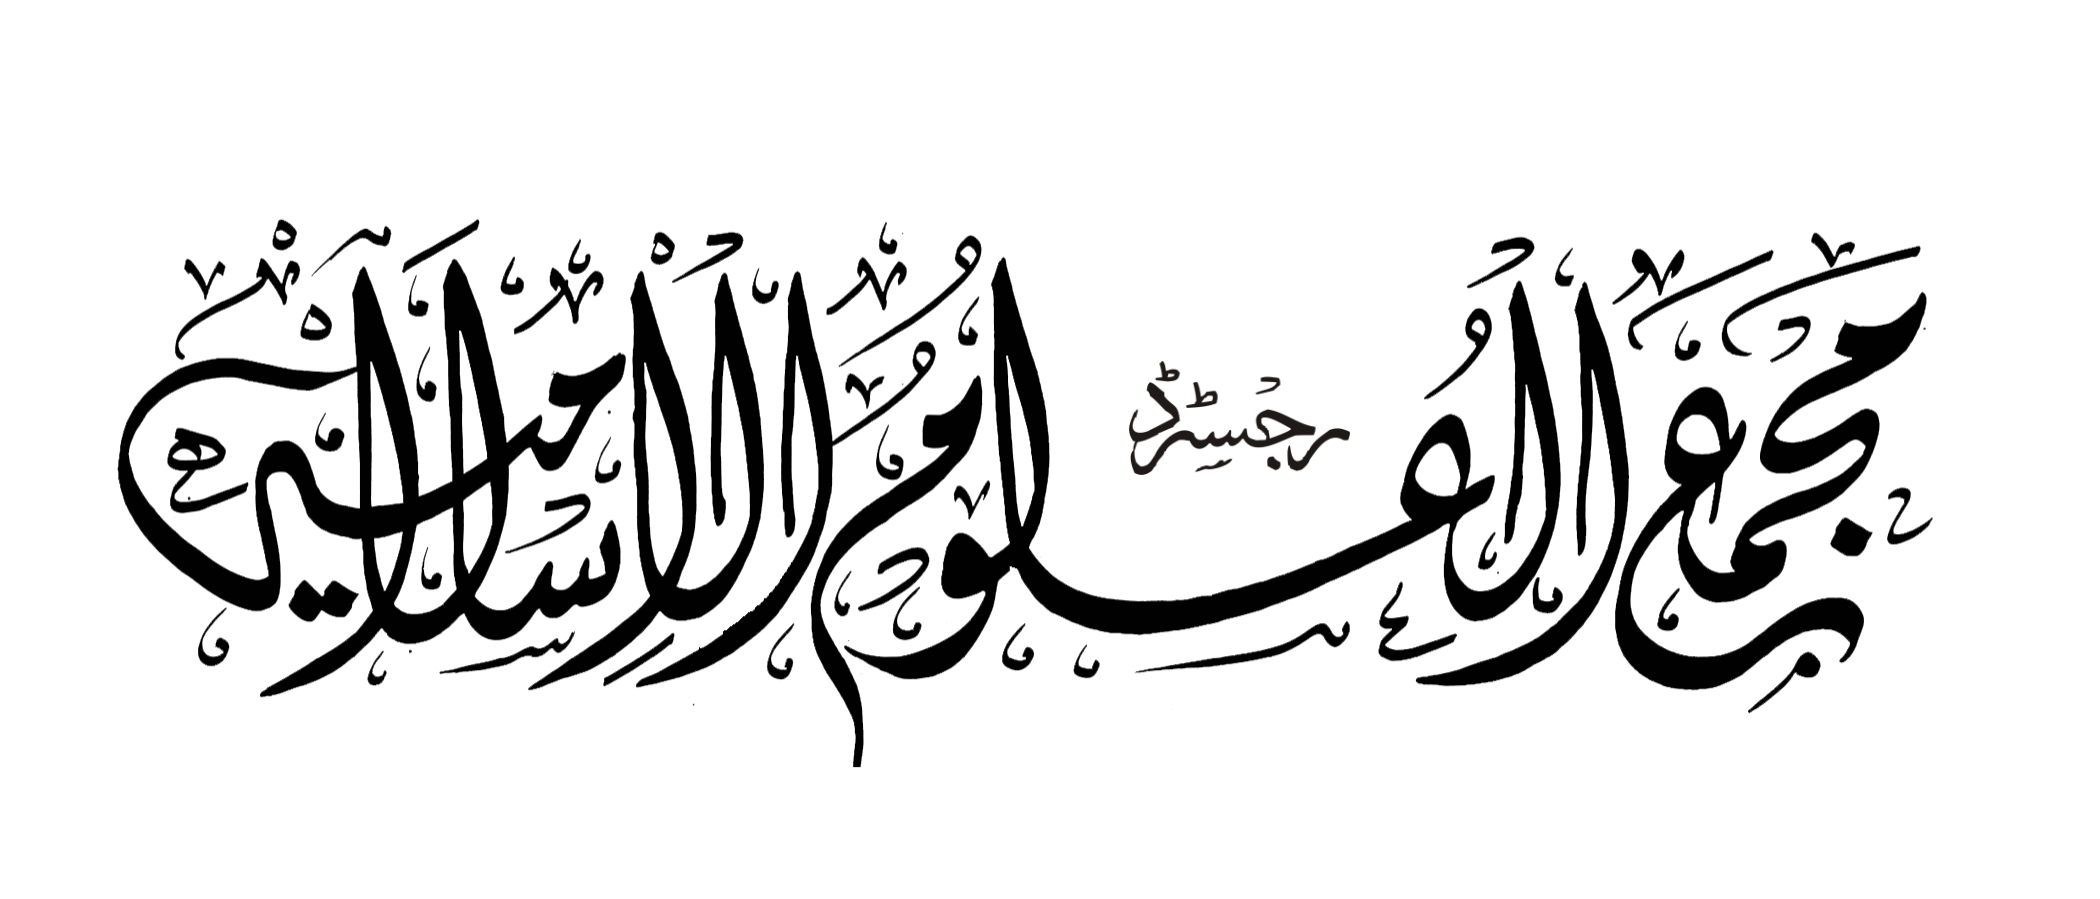 مجمع العلوم الاسلامیہ
رجسٹرڈ